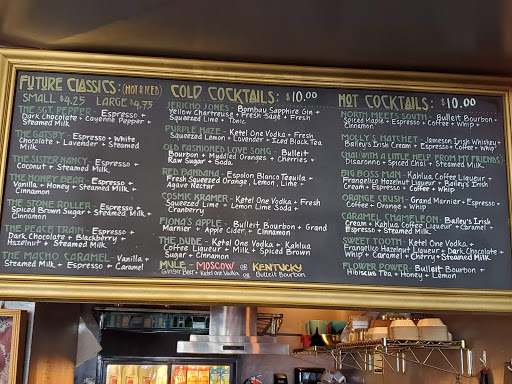 FUTURE CLASSICS: (HOT & ICED)
SMALL $4.25 LARGE $4.75
THE SGT. PEPPER - Espresso +
Dark Chocolate + Cayenne Pepper +
Steamed Milk
THE GATSBY - Espresso + White
Chocolate + Lavender + Steamed
Milk
THE SISTER NANCY - Espresso +
Coconut + Steamed Milk
THE HONEY BEAR - Espresso +
Vanilla + Honey + Steamed Milk +
Cinnamon
THE STONE ROLLER - Espresso +
Spiced Brown Sugar + Steamed Milk +
Cinnamon
THE PEACE TRAIN - Espresso +
Dark Chocolate + Blackberry +
Hazelnut + Steamed Milk
THE MACHO CARAMEL - Vanilla +
Steamed Milk + Espresso + Caramel
COLD COCKTAILS: $10.00
JERICHO JONES - Bombay Sapphire Gin +
Yellow Chartreuse + Fresh Sage + Fresh
Squeezed Lime + Tonic
PURPLE HAZE - Ketel One Vodka + Fresh
Squeezed Lemon + Lavender + Iced Black Tea
OLD FASHIONED LOVE SONG - Bulleit
Bourbon + Muddled Oranges + Cherries +
Raw Sugar + Soda
RED BANDANA - Espolon Blanco Tequila +
Fresh Squeezed Orange, Lemon, Lime +
Agave Nectar
COSMIC KRAMER - Ketel One Vodka + Fresh
Squeezed Lime + Lemon Lime Soda +
Cranberry
FIONA'S APPLE - Bulleit Bourbon + Grand
Marnier + Apple Cider + Cinnamon
THE DUDE - Ketel One Vodka + Kahlua
Coffee Liqueur + Milk + Spiced Brown
Sugar + Cinnamon
MULE - MOSCOW OR KENTUCKY
Ginger Beer + Ketel One Vodka OR Bulleit Bourbon
HOT COCKTAILS: $10.00
NORTH MEETS SOUTH - Bulleit Bourbon +
Spiced Maple + Espresso + Coffee + Whip +
Cinnamon
MOLLY'S HATCHET - Jameson Irish Whiskey +
Bailey's Irish Cream + Espresso + Coffee + Whip
CHAI WITH A LITTLE HELP FROM MY FRIENDS -
Disaronno + Spiced Chai + Steamed Milk
BIG BOSS MAN - Kahlua, Coffee Liqueur +
Frangelico Hazelnut Liqueur + Bailey's Irish
Cream + Espresso + Coffee + Whip
ORANGE CRUSH - Grand Marnier + Espresso +
Coffee + Orange + Whip
CARAMEL CHAMELEON - Bailey's Irish
Cream + Kahlua Coffee Liqueur + Caramel +
Espresso + Steamed Milk
SWEET TOOTH - Ketel One Vodka +
Frangelico Hazelnut Liqueur + Dark Chocolate +
Whip + Caramel + Cherry + Steamed Milk
FLOWER POWER - Bulleit Bourbon +
Hibiscus Tea + Honey + Lemon